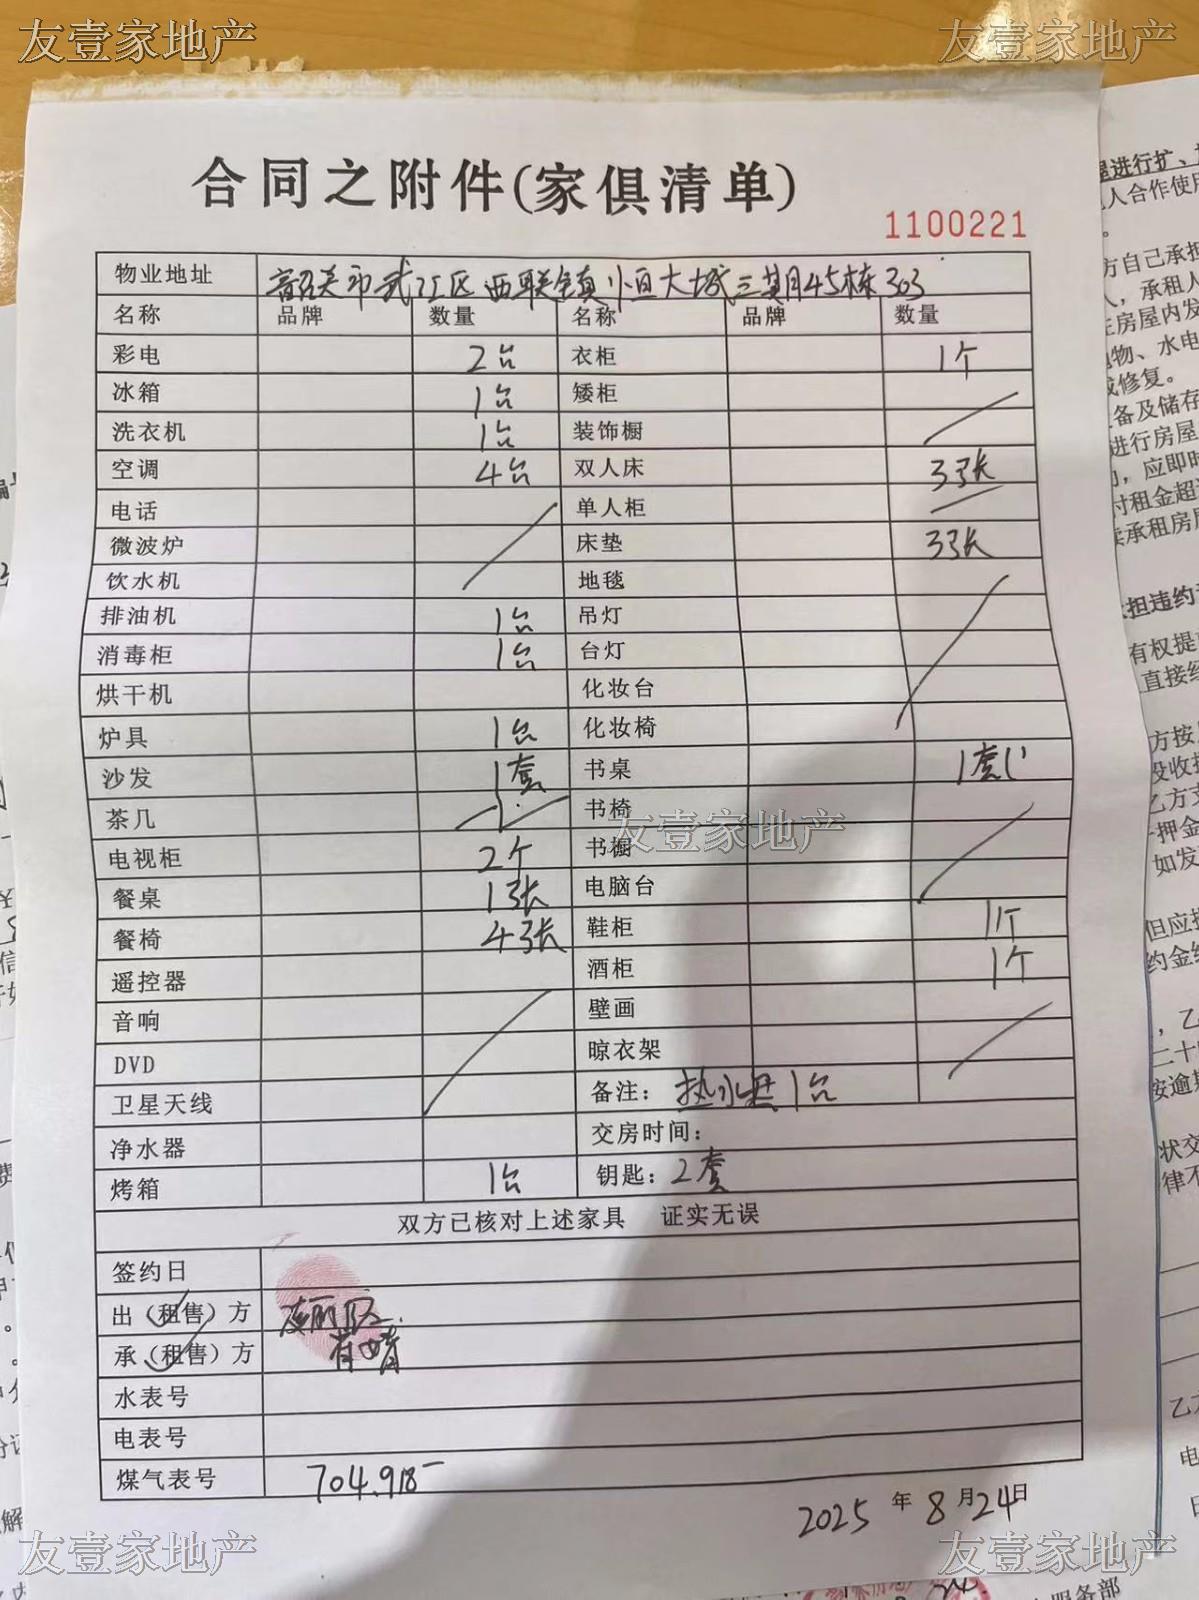 友壹家地产 友壹家地产
合同之附件(家俱清单)
1100221
物业地址 韶关市武江区西联镇恒大城三期45栋303
名称 品牌 数量 名称 品牌 数量
彩电 2台 衣柜 1个
冰箱 1台 矮柜
洗衣机 1台 装饰橱
空调 4台 双人床 3张
电话 单人柜
微波炉 床垫 3张
饮水机 地毯
排油机 1台 吊灯
消毒柜 1台 台灯
烘干机 化妆台
炉具 1台 化妆椅
沙发 1套 书桌 1套
茶几 书椅
友壹家地产
电视柜 2个 书橱
餐桌 1张 电脑台
餐椅 4张 鞋柜 1个
遥控器 酒柜 1个
音响 壁画
DVD 晾衣架
卫星天线 备注: 热水器1台
净水器 交房时间:
烤箱 1台 钥匙: 2套
双方已核对上述家具 证实无误
签约日
出(租售)方
承(租售)方
水表号
电表号
煤气表号 704.918
2025年8月24日
友壹家地产 友壹家地产
服务部